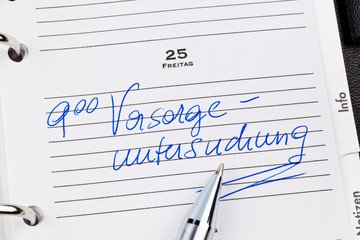 25
FREITAG
9⁰⁰ Vorsorge-
untersuchung
Info
Notizen